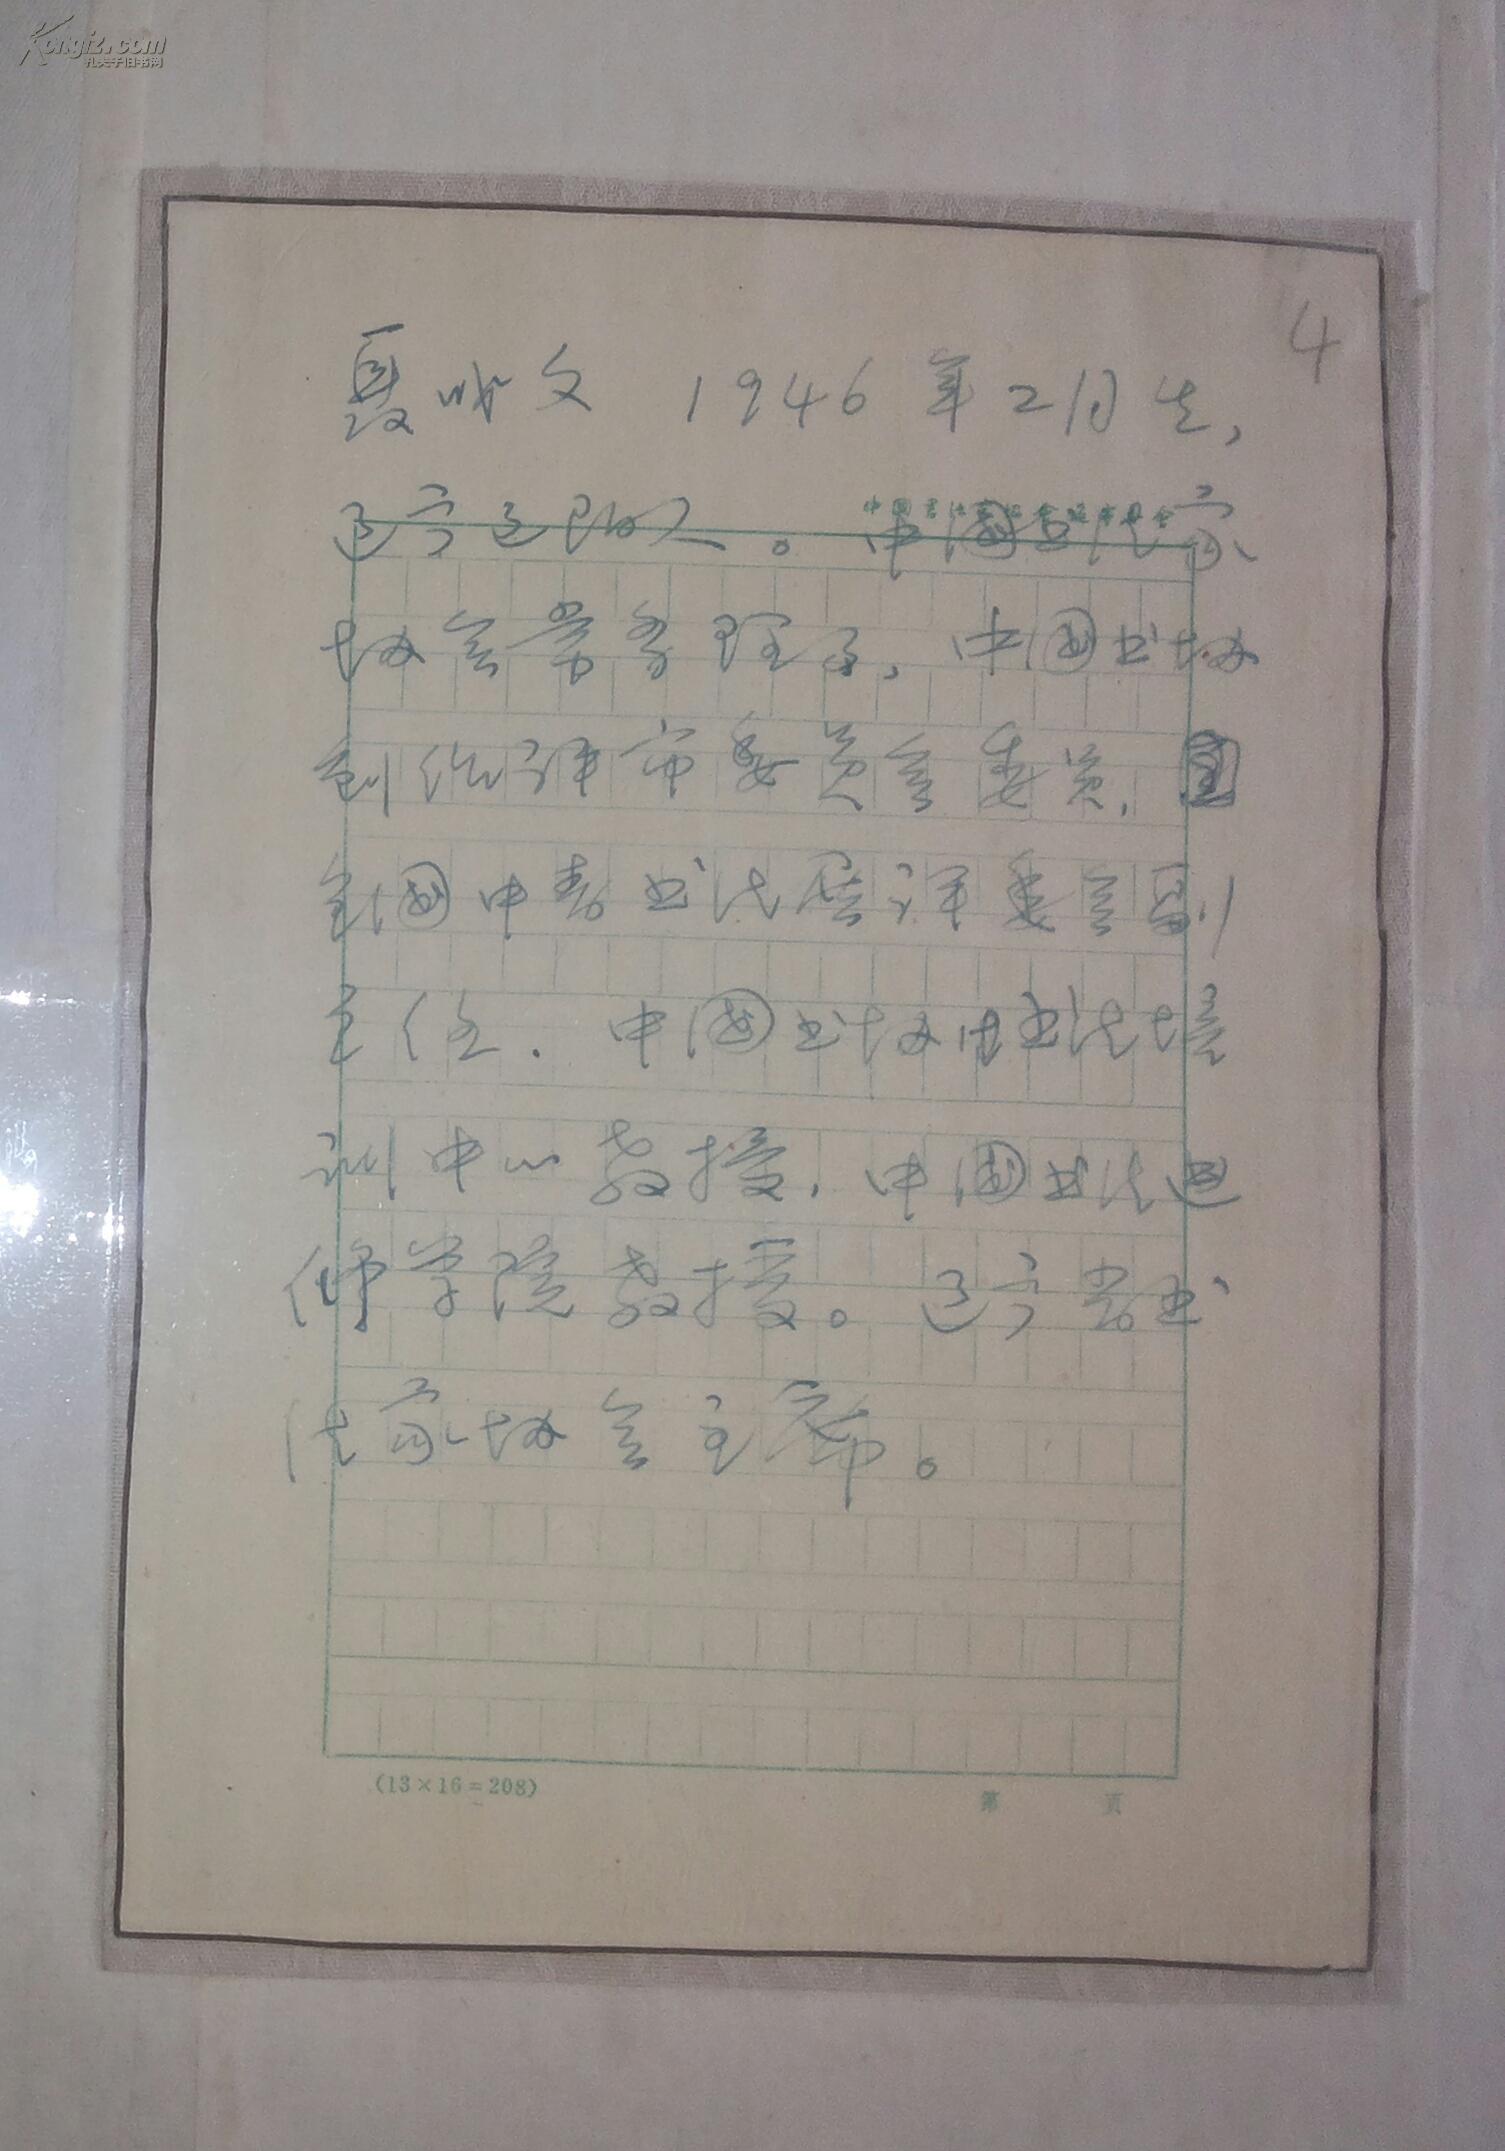 Kongfz.com
孔夫子旧书网
4
聂成文 1946年2月生,
辽宁辽阳人。中国书法家
协会常务理事,中国书协
创作评审委员会委员,
全国中青书法展评委会副
主任.中国书协书法培
训中心教授,中国书法进
修学院教授。辽宁省书
法家协会主席。
(13×16=208)
第 页